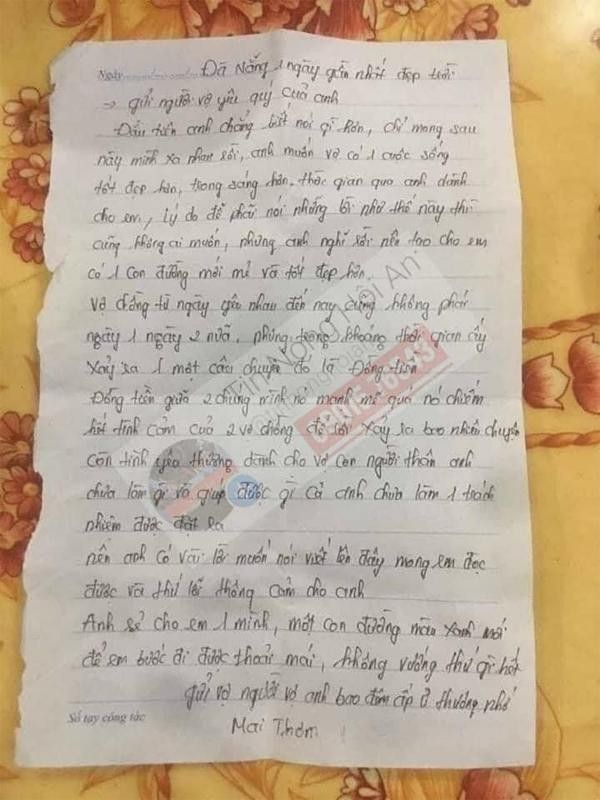 Ngày Đà Nẵng 1 ngày gần nhất đẹp trời
→ gửi người vợ yêu quý của anh
Đầu tiên anh chẳng biết nói gì hơn, chỉ mong sau
này mình xa nhau rồi, anh muốn vợ có 1 cuộc sống
tốt đẹp hơn, trong sáng hơn, thời gian qua anh dành
cho em, lý do để phải nói những lời như thế này thì
cũng không ai muốn, nhưng anh nghĩ rồi nên tạo cho em
có 1 con đường mới mẻ và tốt đẹp hơn.
Vợ chồng từ ngày yêu nhau đến nay cũng không phải
ngày 1 ngày 2 nữa, nhưng trong khoảng thời gian ấy
xảy ra 1 một câu chuyện đó là Đồng tiền
Đồng tiền giữa 2 chúng mình nó mạnh mẽ quá nó chiếm
hết tình cảm của 2 vợ chồng để rồi xảy ra bao nhiêu chuyện
còn tình yêu thương dành cho vợ con người thân anh
chưa làm gì và giúp được gì cả anh chưa làm 1 trách
nhiệm được đặt ra
nên anh có vài lời muốn nói viết lên đây mong em đọc
được và thứ lỗi thông cảm cho anh
Anh sẽ cho em 1 mình, một con đường màu xanh mới
để em bước đi được thoải mái, không vướng thứ gì hết
gửi vợ người vợ anh bao đêm ấp ủ thương nhớ
Sổ tay công tác
Mai Thơm
Tin Nóng Hội An